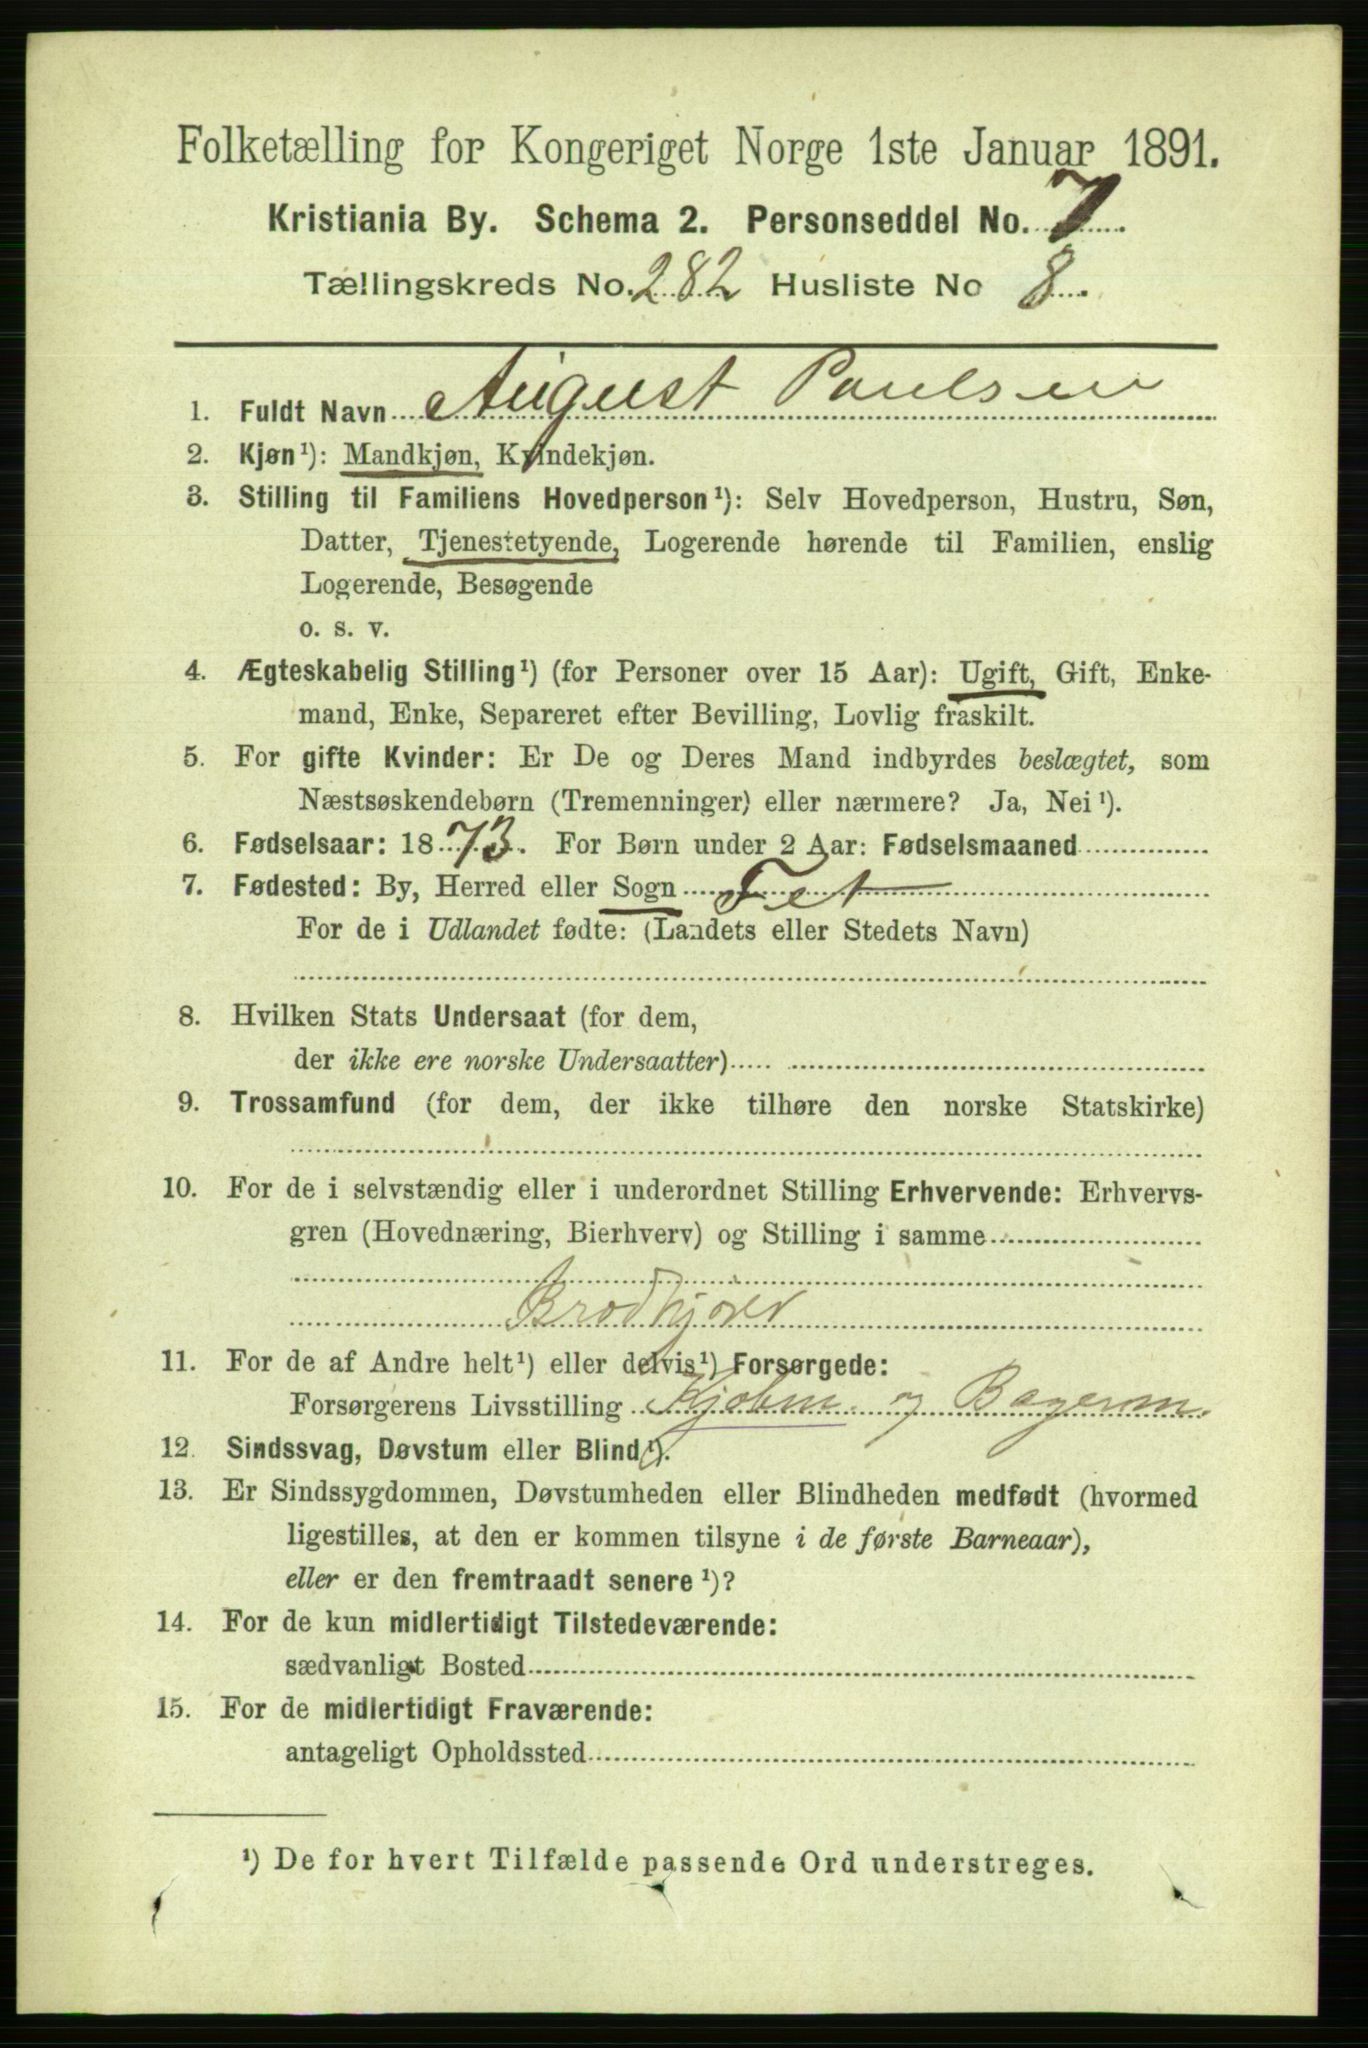 Folketælling for Kongeriget Norge 1ste Januar 1891.
Kristiania By. Schema 2. Personseddel No. 7
Tællingskreds No. 282 Husliste No 8.
1. Fuldt Navn August Paulsen
2. Kjøn¹): Mandkjøn, Kvindekjøn.
3. Stilling til Familiens Hovedperson¹): Selv Hovedperson, Hustru, Søn,
Datter, Tjenestetyende, Logerende hørende til Familien, enslig
Logerende, Besøgende
o. s. v.
4. Ægteskabelig Stilling¹) (for Personer over 15 Aar): Ugift, Gift, Enke-
mand, Enke, Separeret efter Bevilling, Lovlig fraskilt.
5. For gifte Kvinder: Er De og Deres Mand indbyrdes beslægtet, som
Næstsøskendebørn (Tremenninger) eller nærmere? Ja, Nei¹).
6. Fødselsaar: 1873. For Børn under 2 Aar: Fødselsmaaned
7. Fødested: By, Herred eller Sogn Fet
For de i Udlandet fødte: (Landets eller Stedets Navn)
8. Hvilken Stats Undersaat (for dem,
der ikke ere norske Undersaatter)
9. Trossamfund (for dem, der ikke tilhøre den norske Statskirke)
10. For de i selvstændig eller i underordnet Stilling Erhvervende: Erhvervs-
gren (Hovednæring, Bierhverv) og Stilling i samme
Brødkjører
11. For de af Andre helt¹) eller delvis¹) Forsørgede:
Forsørgerens Livsstilling Kjøbm. og Bagerm.
12. Sindssvag, Døvstum eller Blind¹).
13. Er Sindssygdommen, Døvstumheden eller Blindheden medfødt (hvormed
ligestilles, at den er kommen tilsyne i de første Barneaar),
eller er den fremtraadt senere¹)?
14. For de kun midlertidigt Tilstedeværende:
sædvanligt Bosted
15. For de midlertidigt Fraværende:
antageligt Opholdssted
¹) De for hvert Tilfælde passende Ord understreges.